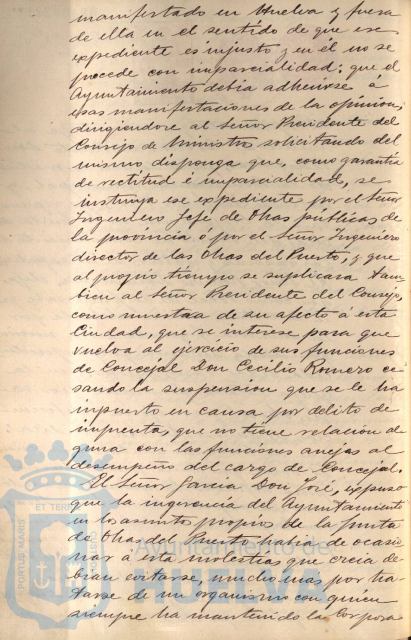 manifestado en Huelva y fuera
de ella en el sentido de que ese
expediente es injusto y en él no se
procede con imparcialidad: que el
Ayuntamiento debia adherirse á
esas manifestaciones de la opinion,
dirigiendose al Señor Presidente del
Consejo de Ministros solicitando del
mismo disponga que, como garantia
de rectitud é imparcialidad, se
instruya ese expediente por el Señor
Ingeniero Jefe de Obras públicas de
la provincia ó por el Señor Ingeniero
director de las Obras del Puerto; y que
al propio tiempo se suplicara tam-
bien al Señor Presidente del Consejo,
como muestra de su afecto á esta
Ciudad, que se interese para que
vuelva al ejercicio de sus funciones
de Concejal Don Cecilio Romero ce
sando la suspension que se le ha
impuesto en causa por delito de
imprenta, que no tiene relacion al
guna con las funciones anejas al
desempeño del cargo de Concejal.
El Señor Garcia Don José, expuso
que la ingerencia del Ayuntamiento
en los asuntos propios de la Junta
de Obras del Puerto habia de ocasio
nar á esta molestias que creia de
bian evitarse, mucho mas por tra
tarse de un organismo con quien
siempre ha mantenido la Corpora
PORTUS MARIS ET TERRAE
Ayuntamiento de
HUELVA